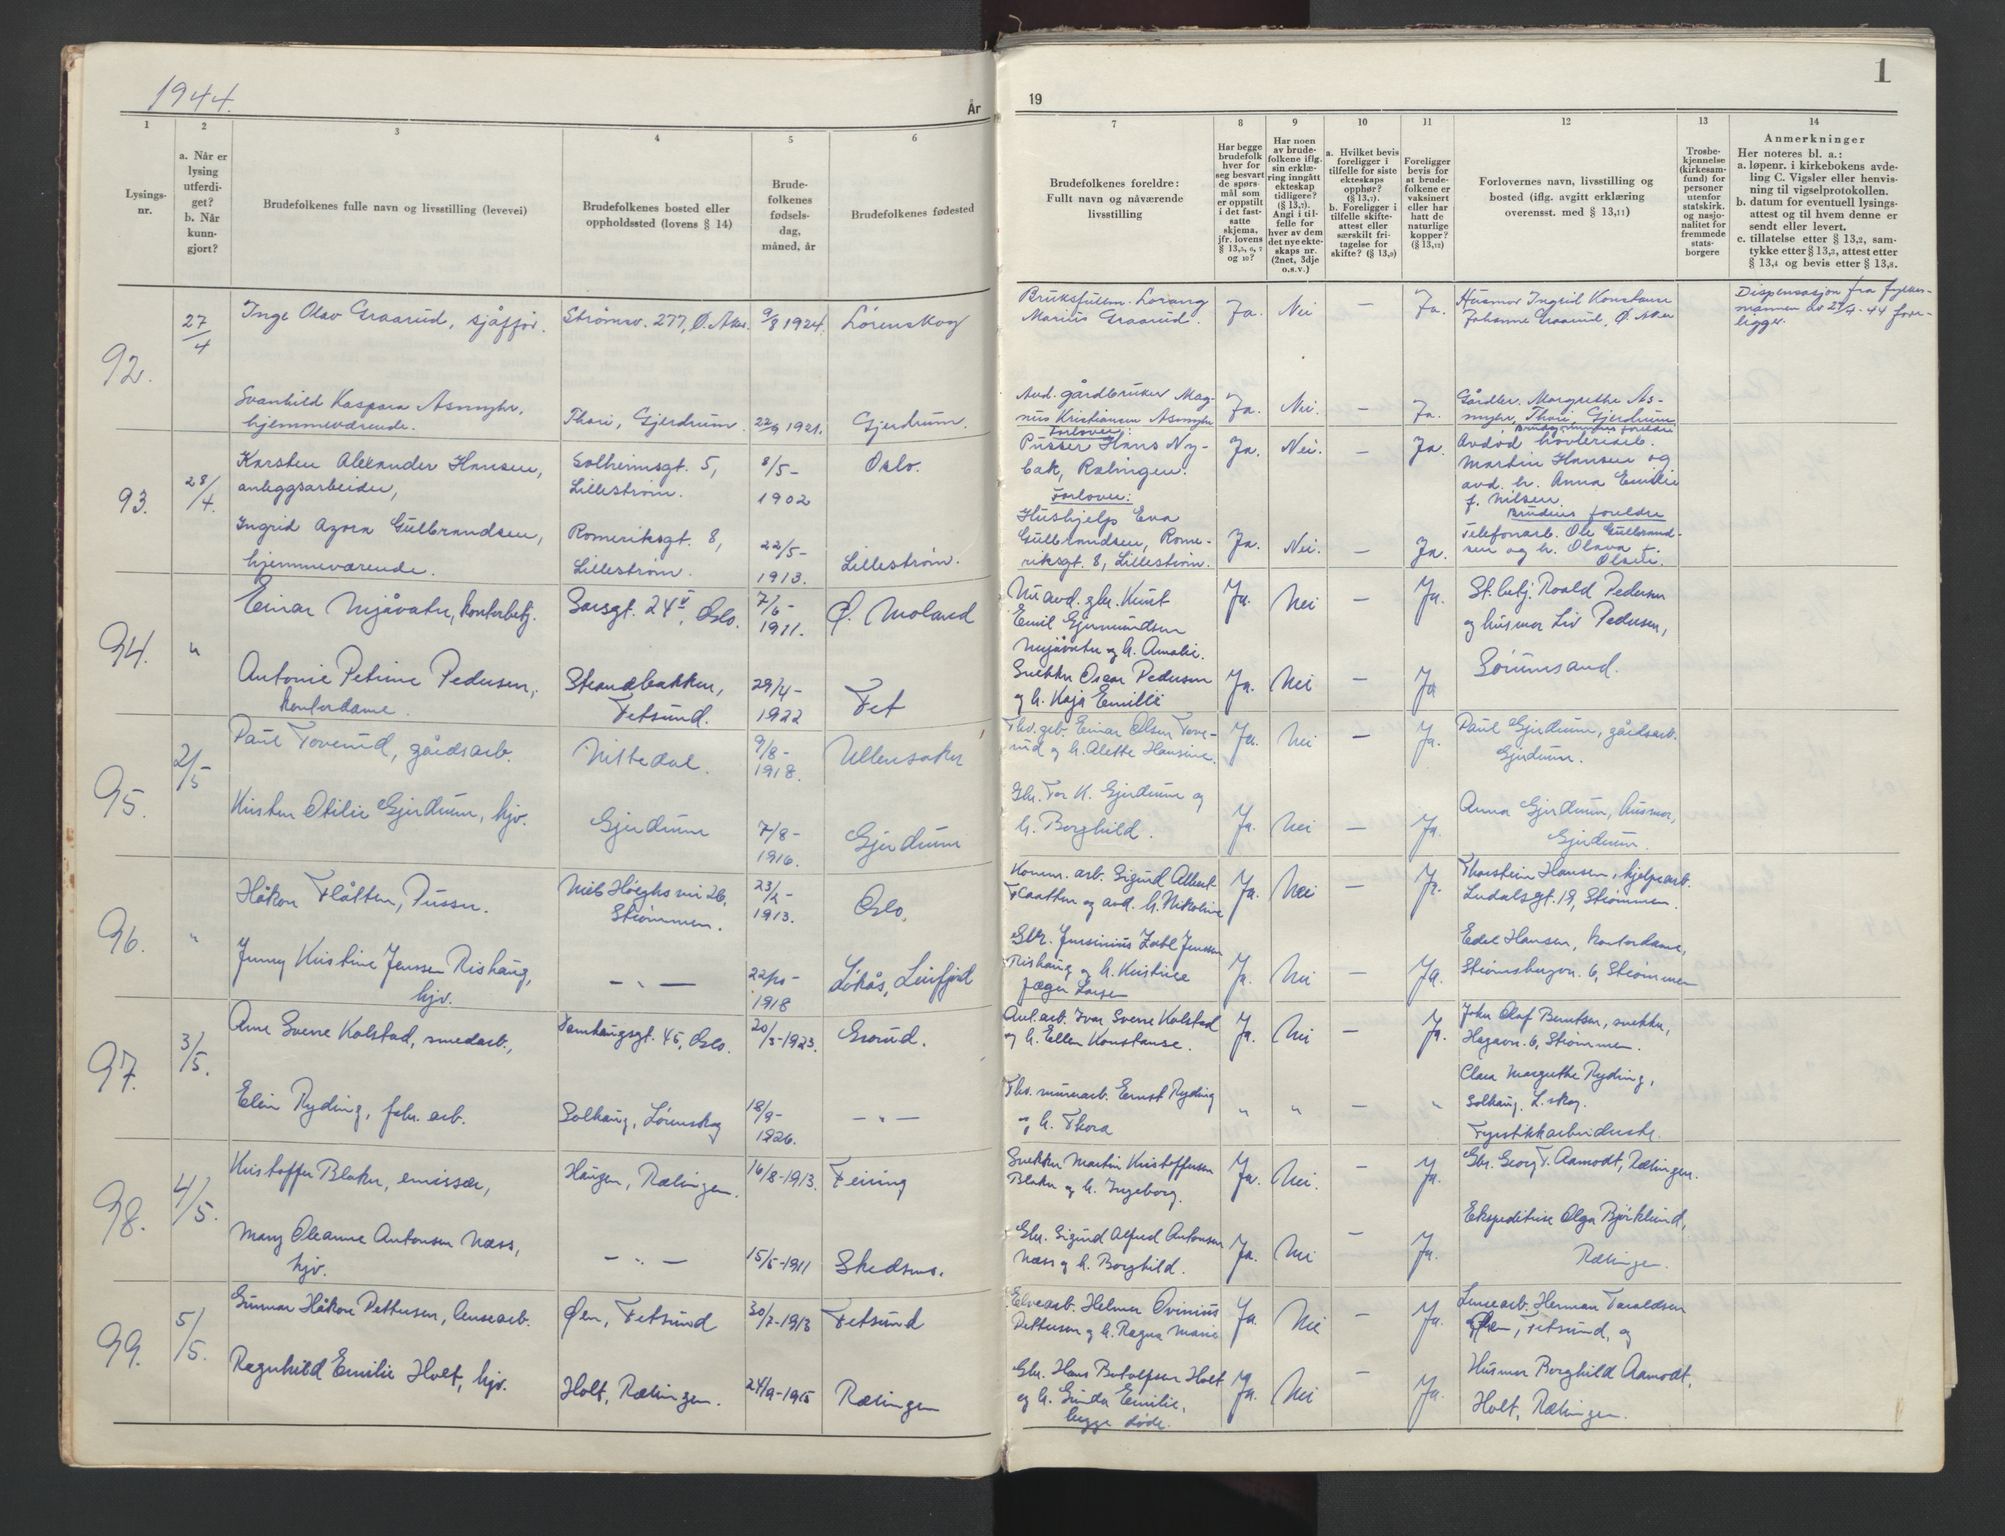 1944.
År
1
2
3
4
5
6
Lysings-
nr.
a. Når er
lysing
utferdi-
get?
b. Når
kunn-
gjort?
Brudefolkenes fulle navn og livsstilling (levevei)
Brudefolkenes bosted eller
oppholdssted (lovens § 14)
Brude-
folkenes
fødsels-
dag,
måned, år
Brudefolkenes fødested
92.
27/4
Inge Olav Graarud, sjåfør.
Strømsv. 277, Ø. Aker.
9/8 1924.
Lørenskog
Svanhild Kaspara Asmyhr,
hjemmeværende.
Thori, Gjerdrum.
22/9 1921.
Gjerdrum.
93.
28/4.
Karsten Alexander Hansen,
anleggsarbeider,
Solheimsgt. 5,
Lillestrøm.
8/5-
1902
Oslo.
Ingrid Azora Gulbrandsen,
hjemmeværende.
Romeriksgt. 8,
Lillestrøm.
22/5-
1913.
Lillestrøm.
94.
"
Einar Mjåvatn, kontorbetj.
Sarsgt. 24 V, Oslo.
7/6-
1911.
Ø. Moland
Antonie Petrine Pedersen,
kontordame.
Strandbakken,
Fetsund.
29/4-
1922
Fet
95.
2/5
Paul Toverud, gårdsarb.
Nittedal.
9/8-
1918.
Ullensaker
Kirsten Otilie Gjerdrum, hjv.
Gjerdrum
7/8-
1916.
Gjerdrum
96.
"
Håkon Flåtten, Pusser.
Niels Høeghs vei 26,
Strømmen.
23/2-
1913.
Oslo.
Jenny Kristine Jenssen Rishaug,
hjv.
— " —
22/10-
1918
Løkås, Leirfjord
97.
3/5.
Arne Sverre Kolstad, smedarb.,
Tomtengsgt. 45, Oslo.
20/3-1923.
Grorud.
Elin Ryding, fabr. arb.
Solhaug, Lørenskog
18/9-
1926.
— " —
98.
4/5.
Kristoffer Blaker, emissær,
Haugen, Rælingen.
16/8-1913.
Feiring
Mary Oleanne Antonsen Næss,
hjv.
— " —
15/5-1911
Skedsmo.
99.
5/5.
Gunnar Håkon Pettersen, lensearb.
Øen, Fetsund
30/7-1913
Fetsund
Ragnhild Emilie Holt, hjv.
Holt, Rælingen.
24/9-1915
Rælingen
19
1
7
8
9
10
11
12
13
14
Brudefolkenes foreldre:
Fullt navn og nåværende
livsstilling
Har begge
brudefolk
hver for
seg besvart
de spørs-
mål som
er oppstilt
i det fast-
satte
skjema,
jfr. lovens
§ 13,5, 6, 7
og 10?
Har noen
av brude-
folkene iflg.
sin erklæ-
ring inngått
ekteskap
tidligere?
(§ 13,7).
Angi i til-
felle for
hver av dem
det nye ekte-
skaps nr.
(2net, 3dje
o.s.v.)
a. Hvilket bevis
foreligger i
tilfelle for siste
ekteskaps
opphør?
(§ 13,7).
b. Foreligger i
tilfelle skifte-
attest eller
særskilt fri-
tagelse for
skifte? (§ 13,9)
Foreligger
bevis for
at brude-
folkene er
vaksinert
eller har
hatt de
naturlige
kopper?
(§ 13,12)
Forlovernes navn, livsstilling og
bosted (iflg. avgitt erklæring
overensst. med § 13,11)
Trosbe-
kjennelse
(kirkesam-
fund) for
personer
utenfor
statskirk.
og nasjo-
nalitet for
fremmede
stats-
borgere
Anmerkninger
Her noteres bl. a.:
a. løpenr. i kirkebokens avde-
ling C. Vigsler eller henvis-
ning til vigselprotokollen.
b. datum for eventuell lysings-
attest og til hvem denne er
sendt eller levert.
c. tillatelse etter § 13,2, sam-
tykke etter § 13,3, attest etter
§ 13,4 og bevis etter § 13,8.
Bruksfullm. Lorang
Marius Graarud.
Ja.
Nei
—
Ja.
Husmor Ingrid Konstanse
Johanne Graarud, Ø. Aker
Dispensasjon fra fylkes-
mannen av 24/4-44 fore-
ligger.
Avd. gårdbruker Mag-
nus Kristiansen Asmyhr
Ja.
Nei.
—
Ja.
Gårdbr. Margrethe As-
myhr, Thori, Gjerdrum
Forlover:
Pusser Hans Ny-
bak, Rælingen.
Ja.
Nei.
—
Ja.
Brudgommens foreldre
Avdød høvleriarb.
Martin Hansen og
avd. h. Anna Emilie
f. Nilsen
Forlover:
Hushjelp Eva
Gulbrandsen, Rome-
riksgt. 8, Lillestrøm.
Ja.
Nei.
—
Ja.
Brudens foreldre
Telefonarb. Ole Gulbrand-
sen og h. Olava f.
Olsen.
Nu avd. gbr. Knut
Emil Gjermundsen
Mjåvatn og h. Amalie.
Ja.
Nei
—
Ja.
St.betj. Roald Pedersen
og husmor Liv Pedersen,
Sørumsand.
Snekker Oscar Pedersen
og h. Kaja Emilie
Ja.
Nei
—
Ja
Fhv. gbr. Einar Olsen Tove-
rud og h. Alette Hansine.
Ja.
Nei
—
Ja.
Paul Gjerdrum, gårdsarb.
Gjerdrum.
Gbr. Tor K. Gjerdrum og
h. Borghild.
Ja.
Nei
—
Ja.
Anna Gjerdrum, husmor,
Gjerdrum.
Komm. arb. Sigurd Albert
Flaatten og avd. h. Nikoline
Ja.
Nei
—
Ja.
Thorstein Hansen, hjelpearb.
Lndalsgt. 19, Strømmen.
Gbr. Jensinius Zabl Jenssen
Rishaug og h. Kristine
Jæger Larsen
Ja.
Nei
—
Ja.
Edel Hansen, kontordame,
Strømsbergvn. 6, Strømmen
Anl.arb. Ivar Sverre Kolstad
og h. Ellen Konstanse.
Ja.
Nei
—
Ja.
John Olaf Berntsen, snekker,
Hagavn. 6, Strømmen.
Fhv. murerarb. Ernst Ryding
og h. Thora
"
"
—
"
Clara Margrethe Ryding,
Solhaug, L.skog.
Fyrstikkarbeiderske.
Snekker Martin Kristoffersen
Blaker og h. Ingeborg.
Ja.
Nei.
—
Ja.
Gbr. Georg T. Aamodt, Rælingen.
Gbr. Sigurd Alfred Antonsen
Næss og h. Borghild.
Ja.
Nei
—
Ja.
Ekspeditrise Olga Bjørklund,
Rælingen.
Elvearb. Helmer Ovinius
Pettersen og h. Ragna Marie
Ja.
Nei
—
Ja.
Lensearb. Herman Taraldsen
Øen, Fetsund, og
Gbr. Hans Botolfsen Holt
og h. Gunda Emilie,
begge døde.
Ja.
Nei
—
Ja.
Husmor Borghild Aamodt,
Holt, Rælingen.